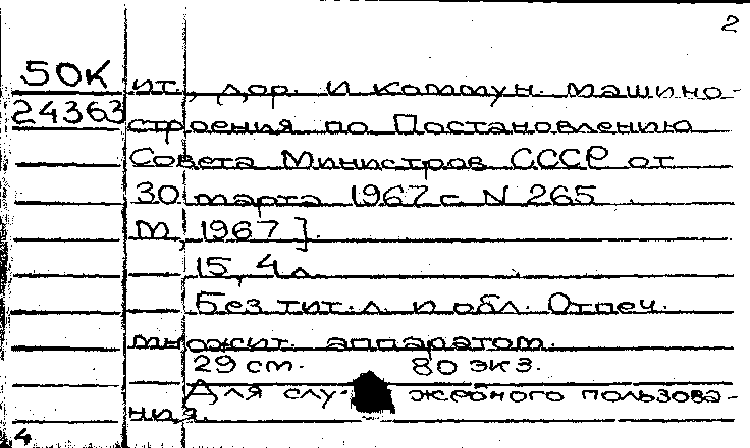 2
50К ит., дор. и коммун. машино-
24363 строения по Постановлению
Совета Министров СССР от
30 марта 1967 г N 265
М, 1967].
15, 4 л
Без тит. л. и обл. Отпеч.
множит. аппаратом.
29 см. 80 экз.
Для служебного пользова-
ния.
4